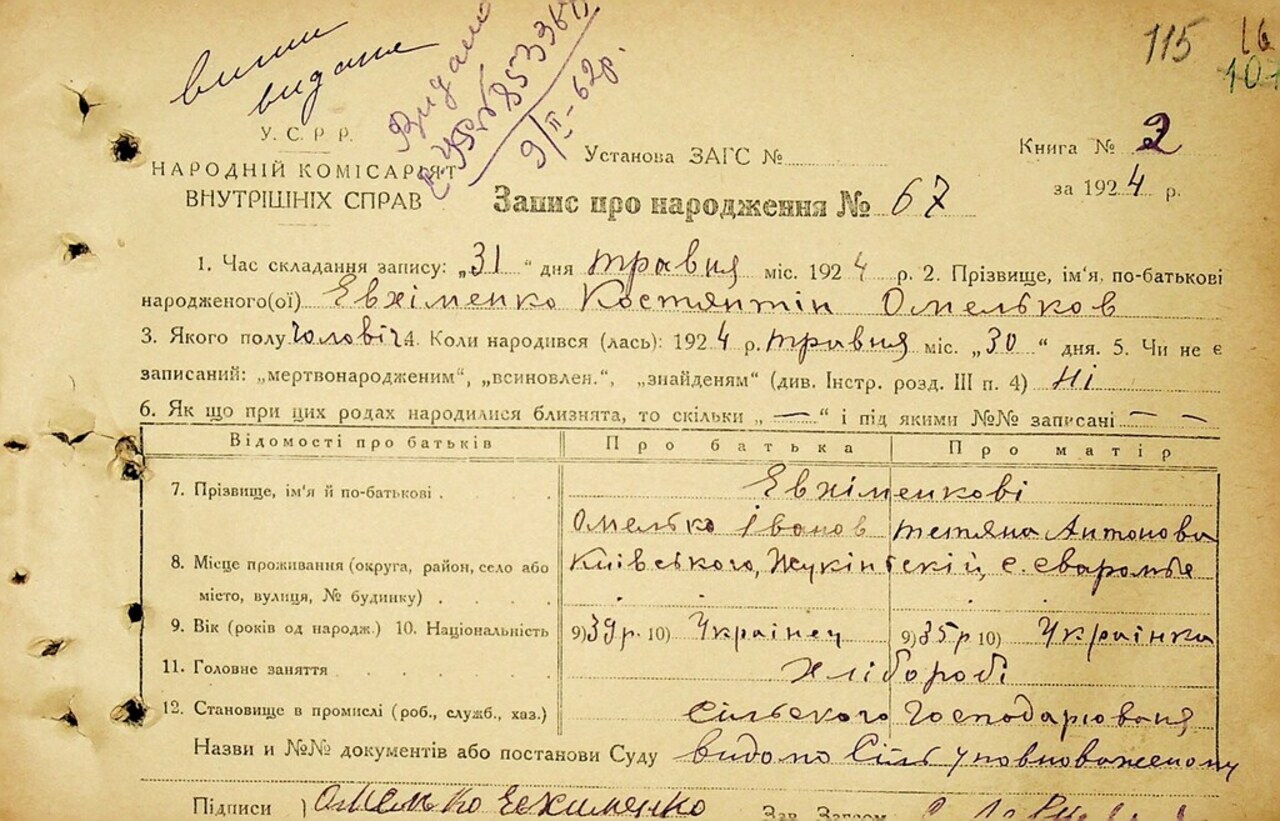 115
витяг видано
Видано
9/II–62р.
У. С. Р. Р.
НАРОДНІЙ КОМІСАРІЯТ
ВНУТРІШНІХ СПРАВ
Установа ЗАГС №
Книга № 2
за 1924 р.
Запис про народження № 67
1. Час складання запису: „31“ дня травня міс. 1924 р. 2. Прізвище, ім'я, по-батькові
народженого(ої) Евхіменко Костянтін Омельков
3. Якого полу чоловіч 4. Коли народився (лась): 1924 р. травня міс. „30“ дня. 5. Чи не є
записаний: „мертвонародженим“, „всиновлен.“, „знайденям“ (див. Інстр. розд. III п. 4) Ні
6. Як що при цих родах народилися близнята, то скільки „—“ і під якими №№ записані — —
Відомості про батьків Про батька Про матір
7. Прізвище, ім'я й по-батькові Евхіменкові
Омелько Іванов Тетяна Антонова
8. Місце проживання (округа, район, село або Київського, Жукінській, с. Сваромьє
місто, вулиця, № будинку)
9. Вік (років од народж.) 10. Національність 9) 39р. 10) Українец 9) 35р 10) Українка
11. Головне заняття Хлібороби
12. Становище в промислі (роб., служб., хаз.) Сільского Господарюваня
Назви и №№ документів або постанови Суду видомо Сіль уповноваженому
Підписи Омелько Евхименко Зав. Загсом